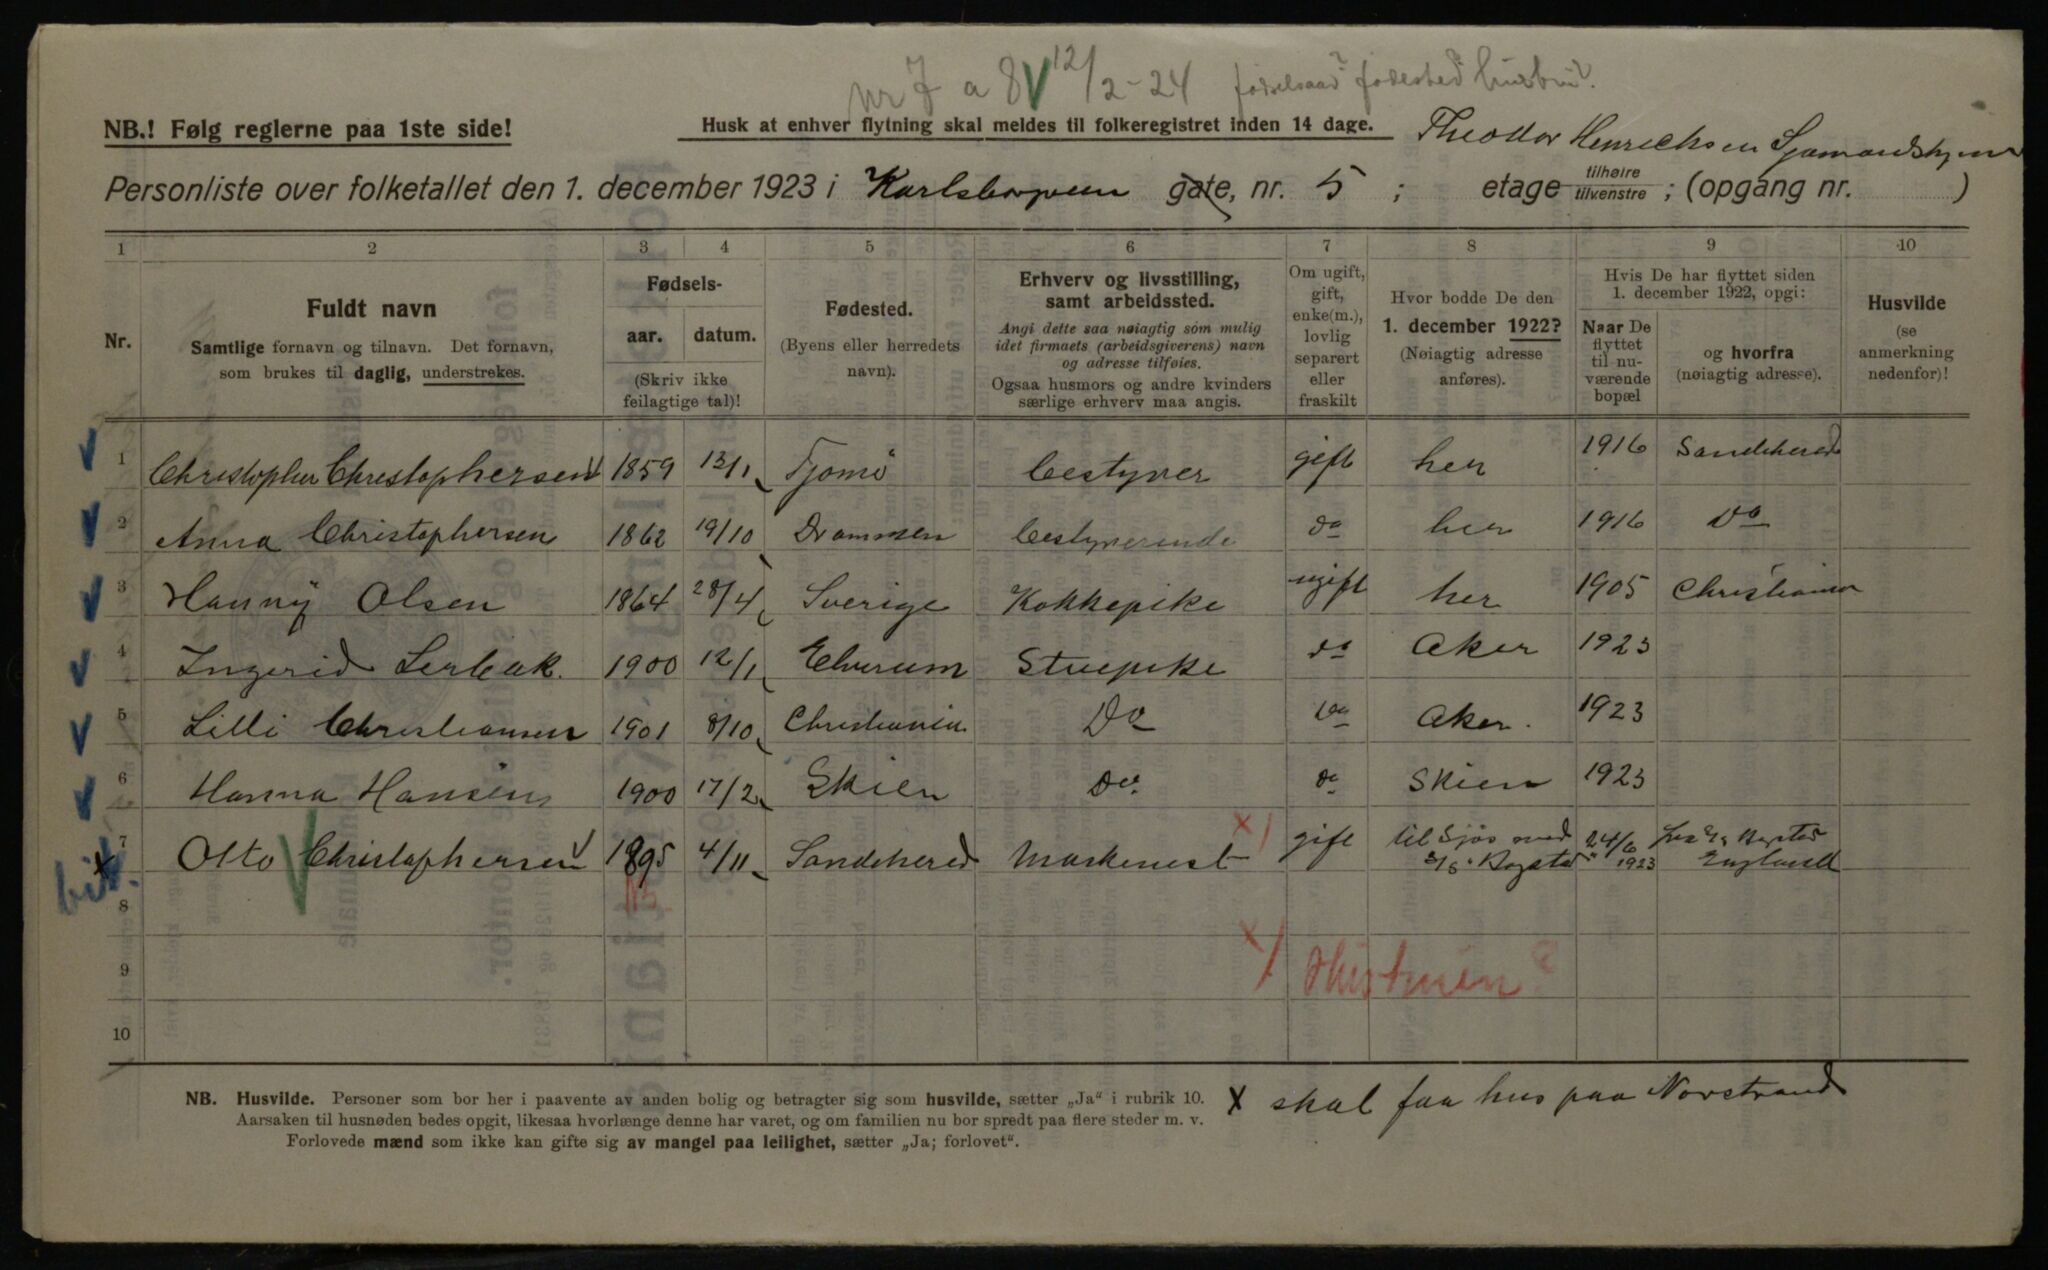 nr 7 a 8 12/2-24 fødselsaar? fødested hustru?
NB.! Følg reglerne paa 1ste side!
Husk at enhver flytning skal meldes til folkeregistret inden 14 dage.
Theodor Henrichsen Sjømandshjem
Personliste over folketallet den 1. december 1923 i Karlsborgveien gate, nr. 5 ; etage tilhøire tilvenstre ; (opgang nr. )
1 2 3 4 5 6 7 8 9 10
Nr.
Fuldt navn
Samtlige fornavn og tilnavn. Det fornavn, som brukes til daglig, understrekes.
Fødsels-
aar. datum.
(Skriv ikke feilagtige tal)!
Fødested.
(Byens eller herredets navn).
Erhverv og livsstilling, samt arbeidssted.
Angi dette saa nøiagtig som mulig idet firmaets (arbeidsgiverens) navn og adresse tilføies.
Ogsaa husmors og andre kvinders særlige erhverv maa angis.
Om ugift, gift, enke(m.), lovlig separert eller fraskilt
Hvor bodde De den 1. december 1922?
(Nøiagtig adresse anføres).
Hvis De har flyttet siden 1. december 1922, opgi:
Naar De flyttet til nuværende bopæl
og hvorfra (nøiagtig adresse).
Husvilde
(se anmerkning nedenfor)!
1 Christopher Christophersen 1859 13/1 Tjømø bestyrer gift her 1916 Sandeherred
2 Anna Christophersen 1862 19/10 Drammen bestyrerinde do her 1916 Do
3 Hanny Olsen 1864 28/4 Sverige Kokkepike ugift her 1905 Christiania
4 Ingerid 1900 12/1 Elverum Stuepike do Aker 1923
5 Lilli Christiansen 1901 8/10 Christiania Do do Aker. 1923
6 Hanna Hansen 1900 17/2 Skien Do. do Skien 1923
7 Otto Christophersen 1895 4/11 Sandeherred Maskinest x) gift til Sjøs med 24/6 fra
S/S "Bogstad" 1923 England
bit.
8
x) Hustruen?
9
10
NB. Husvilde. Personer som bor her i paavente av anden bolig og betragter sig som husvilde, sætter „Ja" i rubrik 10.
Aarsaken til husnøden bedes opgit, likesaa hvorlænge denne har varet, og om familien nu bor spredt paa flere steder m. v.
Forlovede mænd som ikke kan gifte sig av mangel paa leilighet, sætter „Ja; forlovet".
X skal faa hus paa Norstrand